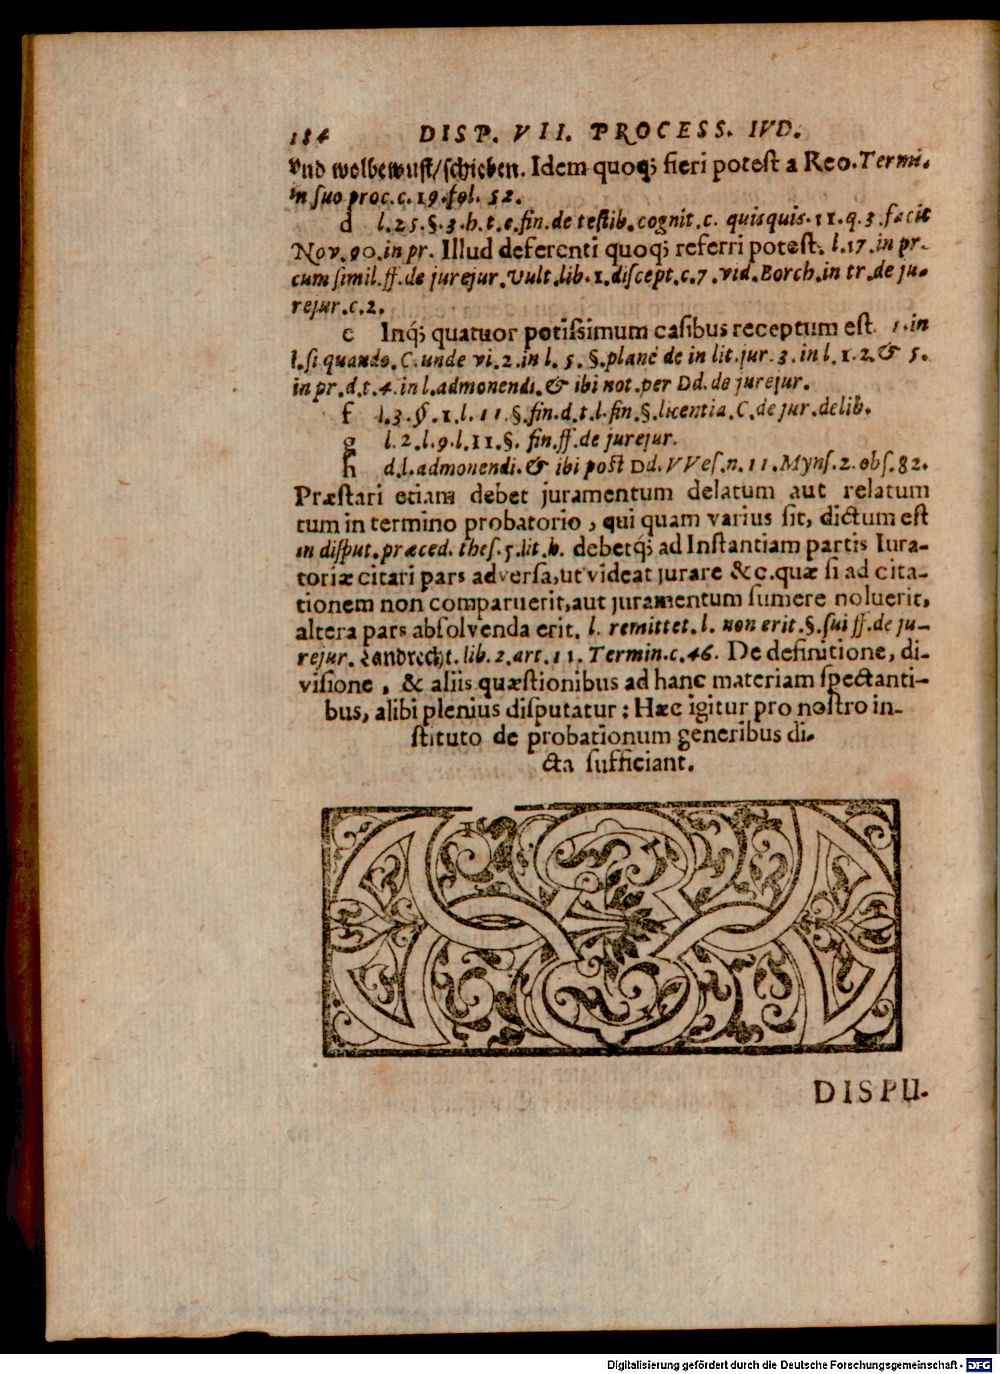 184 DISP. VII. PROCESS. IVD.
vnd wolbewust/schieben. Idem quoq; fieri potest a Reo. Termi.
in suo proc. c. 19. fol. 52.
d l. 25. §. 3. h. t. e. fin. de testib. cognit. c. quisquis. 11. q. 3. facit
Nov. 90. in pr. Illud deferenti quoq; referri potest. l. 17. in pr.
cum simil. ff. de jurejur. Vult. lib. 1. discept. c. 7. vid. Borch. in tr. de ju-
rejur. c. 2.
e Inq; quatuor potissimum casibus receptum est. 1. in
l. si quando. C. unde vi. 2. in l. 5. §. planè de in lit. jur. 3. in l. 1. 2. & 5.
in pr. d. t. 4. in l. admonendi. & ibi not. per Dd. de jurejur.
f l. 3. §. 1. l. 11. §. fin. d. t. l. fin. §. licentia. C. de jur. delib.
g l. 2. l. 9. l. 11. §. fin. ff. de jurejur.
h d. l. admonendi. & ibi post Dd. VVes. n. 11. Myns. 2. obs. 82.
Præstari etiam debet juramentum delatum aut relatum
tum in termino probatorio, qui quam varius sit, dictum est
in disput. præced. thes. 5. lit. b. debetq; ad Instantiam partis Iura-
toriæ citari pars adversa, ut videat jurare &c. quæ si ad cita-
tionem non comparuerit, aut juramentum sumere noluerit,
altera pars absolvenda erit. l. remittet. l. non erit. §. sui ff. de ju-
rejur. Landrecht. lib. 2. art. 11. Termin. c. 46. De definitione, di-
visione, & aliis quæstionibus ad hanc materiam spectanti-
bus, alibi plenius disputatur: Hæc igitur pro nostro in-
stituto de probationum generibus di-
cta sufficiant.
DISPU-
Digitalisierung gefördert durch die Deutsche Forschungsgemeinschaft - DFG